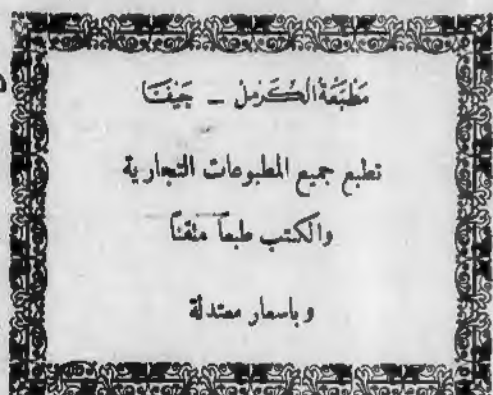 مطبعة الكرمل - حيفا
تطبع جميع المطبوعات التجارية
والكتب طبعاً متقناً
وباسعار معتدلة